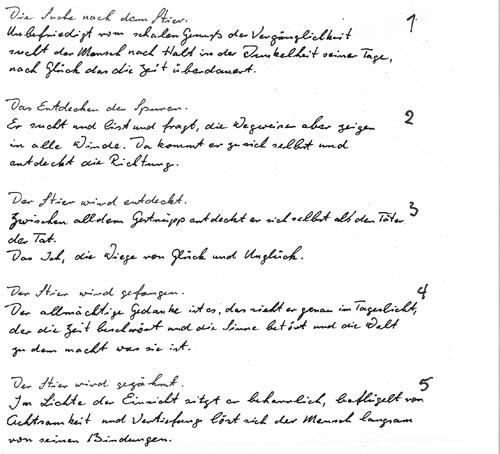 Die Suche nach dem Stier. 1
Unbefriedigt vom schalen Genuß der Vergänglichkeit
sucht der Mensch nach Halt in der Dunkelheit seiner Tage,
nach Glück das die Zeit überdauert.
Das Entdecken der Spuren. 2
Er sucht und liest und fragt, die Wegweiser aber zeigen
in alle Winde. Da kommt er zu sich selbst und
entdeckt die Richtung.
Der Stier wird entdeckt. 3
Zwischen all dem Gestrüpp entdeckt er sich selbst als den Täter
der Tat.
Das Ich, die Wiege von Glück und Unglück.
Der Stier wird gefangen. 4
Der allmächtige Gedanke ist es, das sieht er genau im Tageslicht,
der die Zeit beschwört und die Sinne betört und die Welt
zu dem macht was sie ist.
Der Stier wird gezähmt. 5
Im Lichte der Einsicht sitzt er beharrlich, beflügelt von
Achtsamkeit und Vertiefung löst sich der Mensch langsam
von seinen Bindungen.